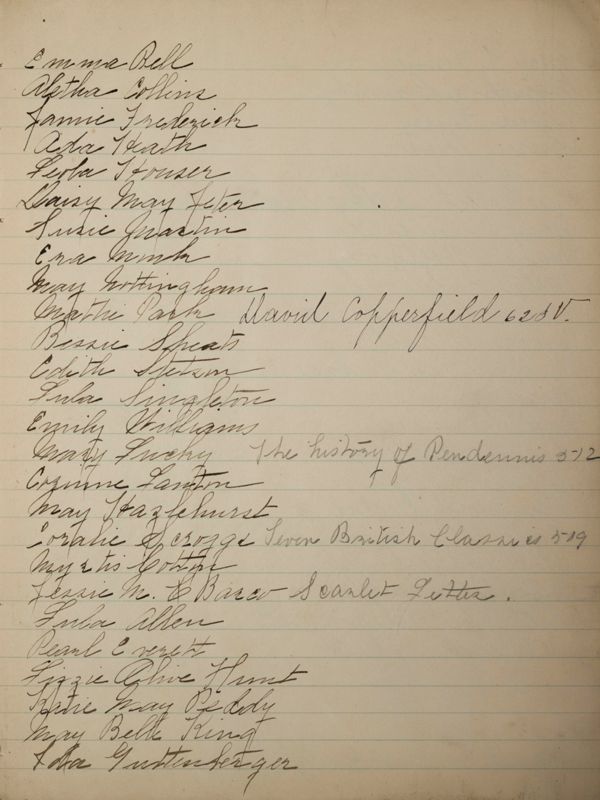 Emma Bell
Aletha Collins
Jamie Frederick
Ada Heath
Leola Houser
Daisy May Jeter
Susie Martin
Era Mink
May Nottingham
Mathi Park David Copperfield 628 V.
Bessie Speats
Edith Stetson
Lula Singleton
Emily Williams
Mary Luchy The history of Pendennis 572
Corinne Lawton
May Hazlehurst
Coralie Scroggs Seven British Classics 519
Myrtis Cotton
Jessie M. C Basco Scarlet Letter.
Lula Allen
Pearl Everett
Lizzie Olive Hunt
Katie May Peddy
May Belle King
Ida Guttenberger